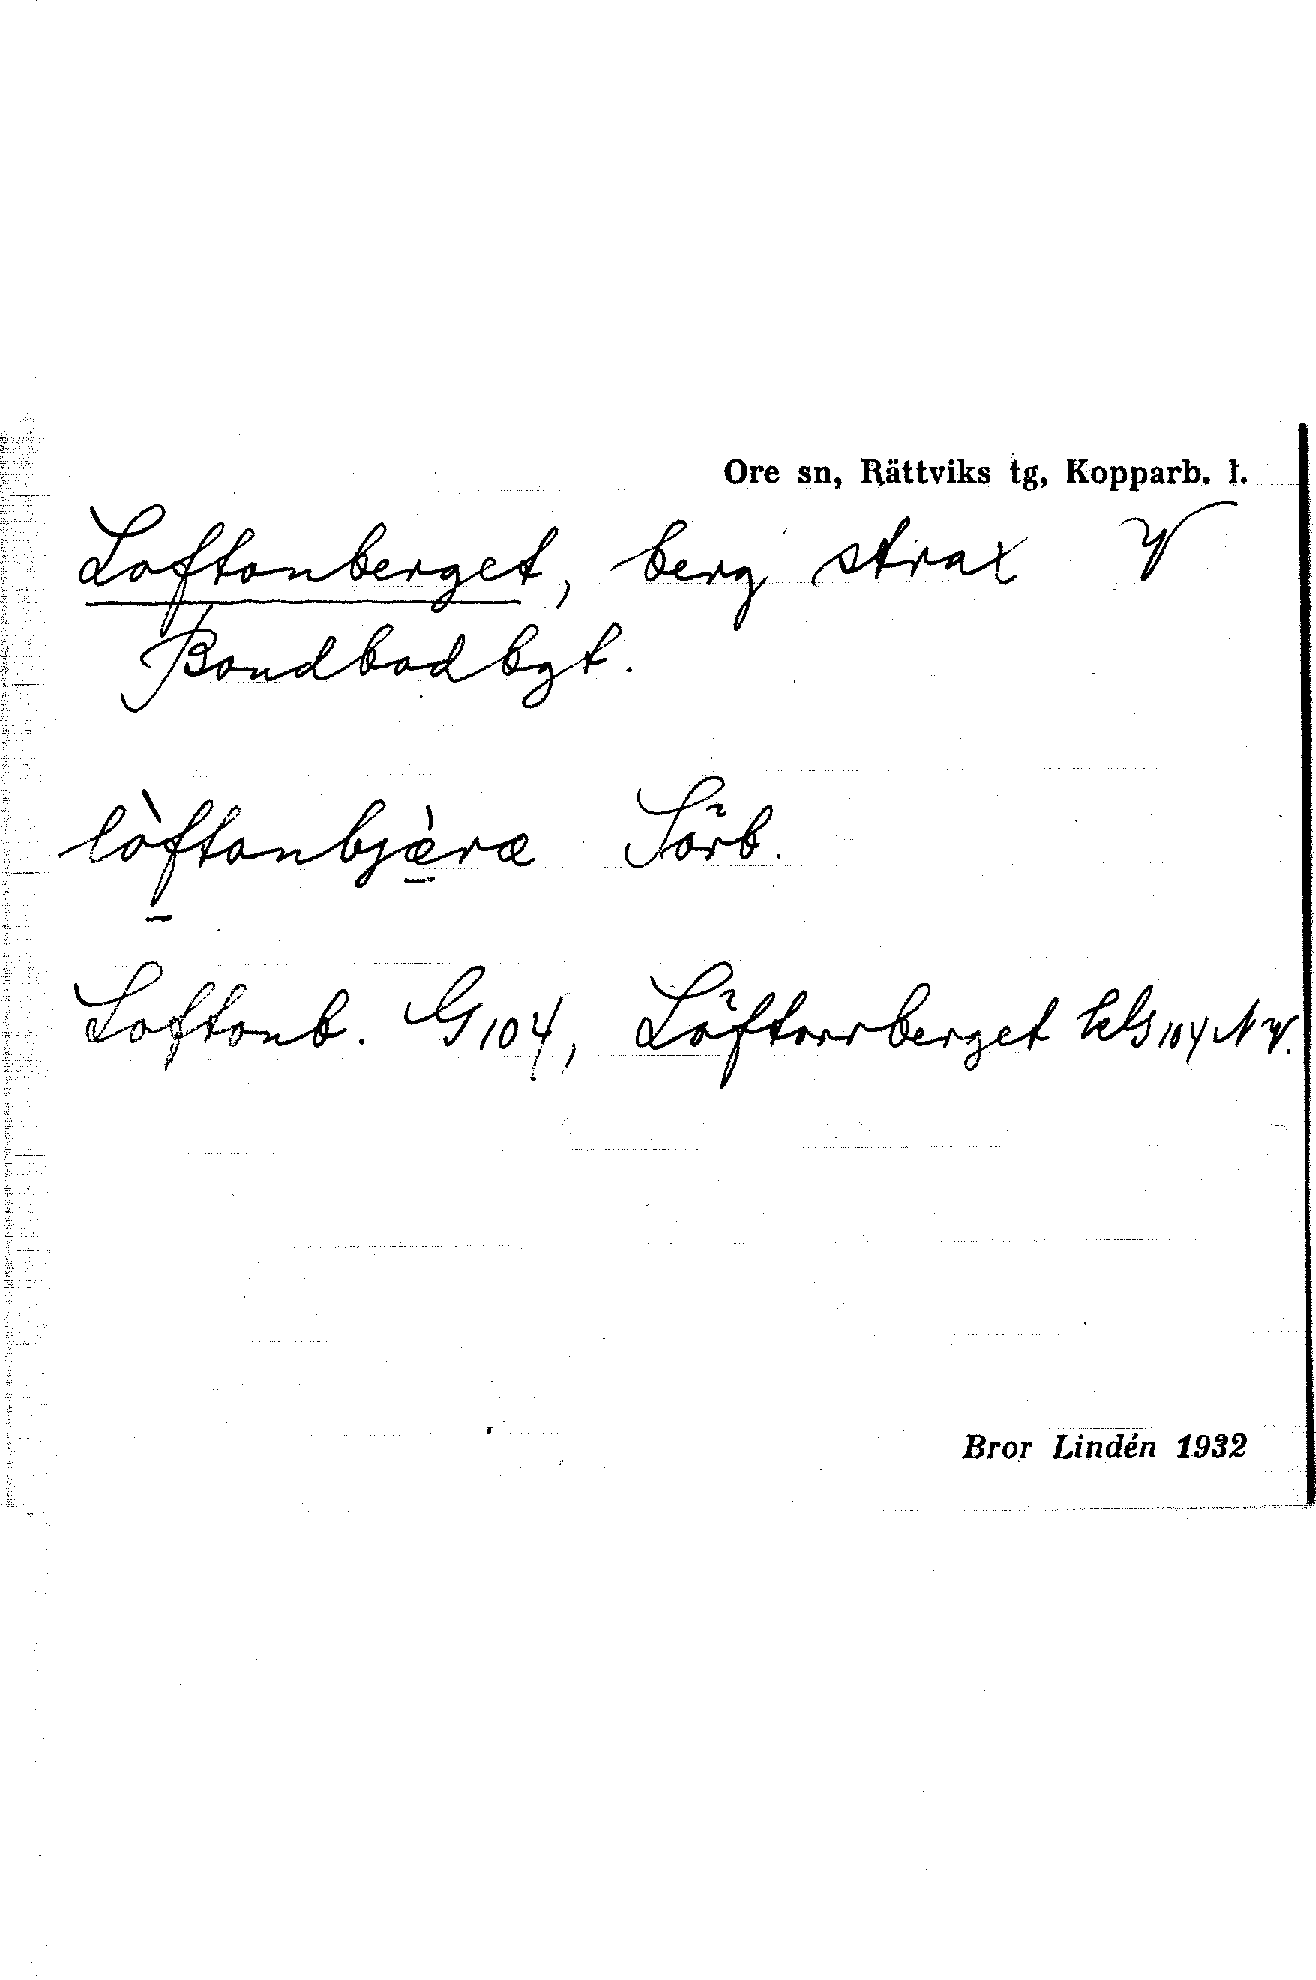 Ore sn, Rättviks tg, Kopparb. l.
Loftonberget, berg strax V
Bondbodbgt.
lòftonbjæ̀ræ Sörb.
Loftonb. G 104, Löftorrberget hG 104 NV.
Bror Lindén 1932